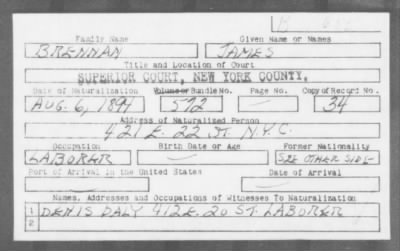 B-655
Family Name Given Name or Names
BRENNAN JAMES
Title and Location of Court
SUPERIOR COURT, NEW YORK COUNTY.
Date of Naturalization Volume or Bundle No. Page No. Copy of Record No.
AUG. 6, 1894 572 — 34
Address of Naturalized Person
421 E. 22 ST. N.Y.C.
Occupation Birth Date or Age Former Nationality
LABORER — SEE OTHER SIDE
Port of Arrival in the United States Date of Arrival
— —
Names, Addresses and Occupations of Witnesses To Naturalization
1 DENIS DALY 412 E. 20 ST. LABORER
2